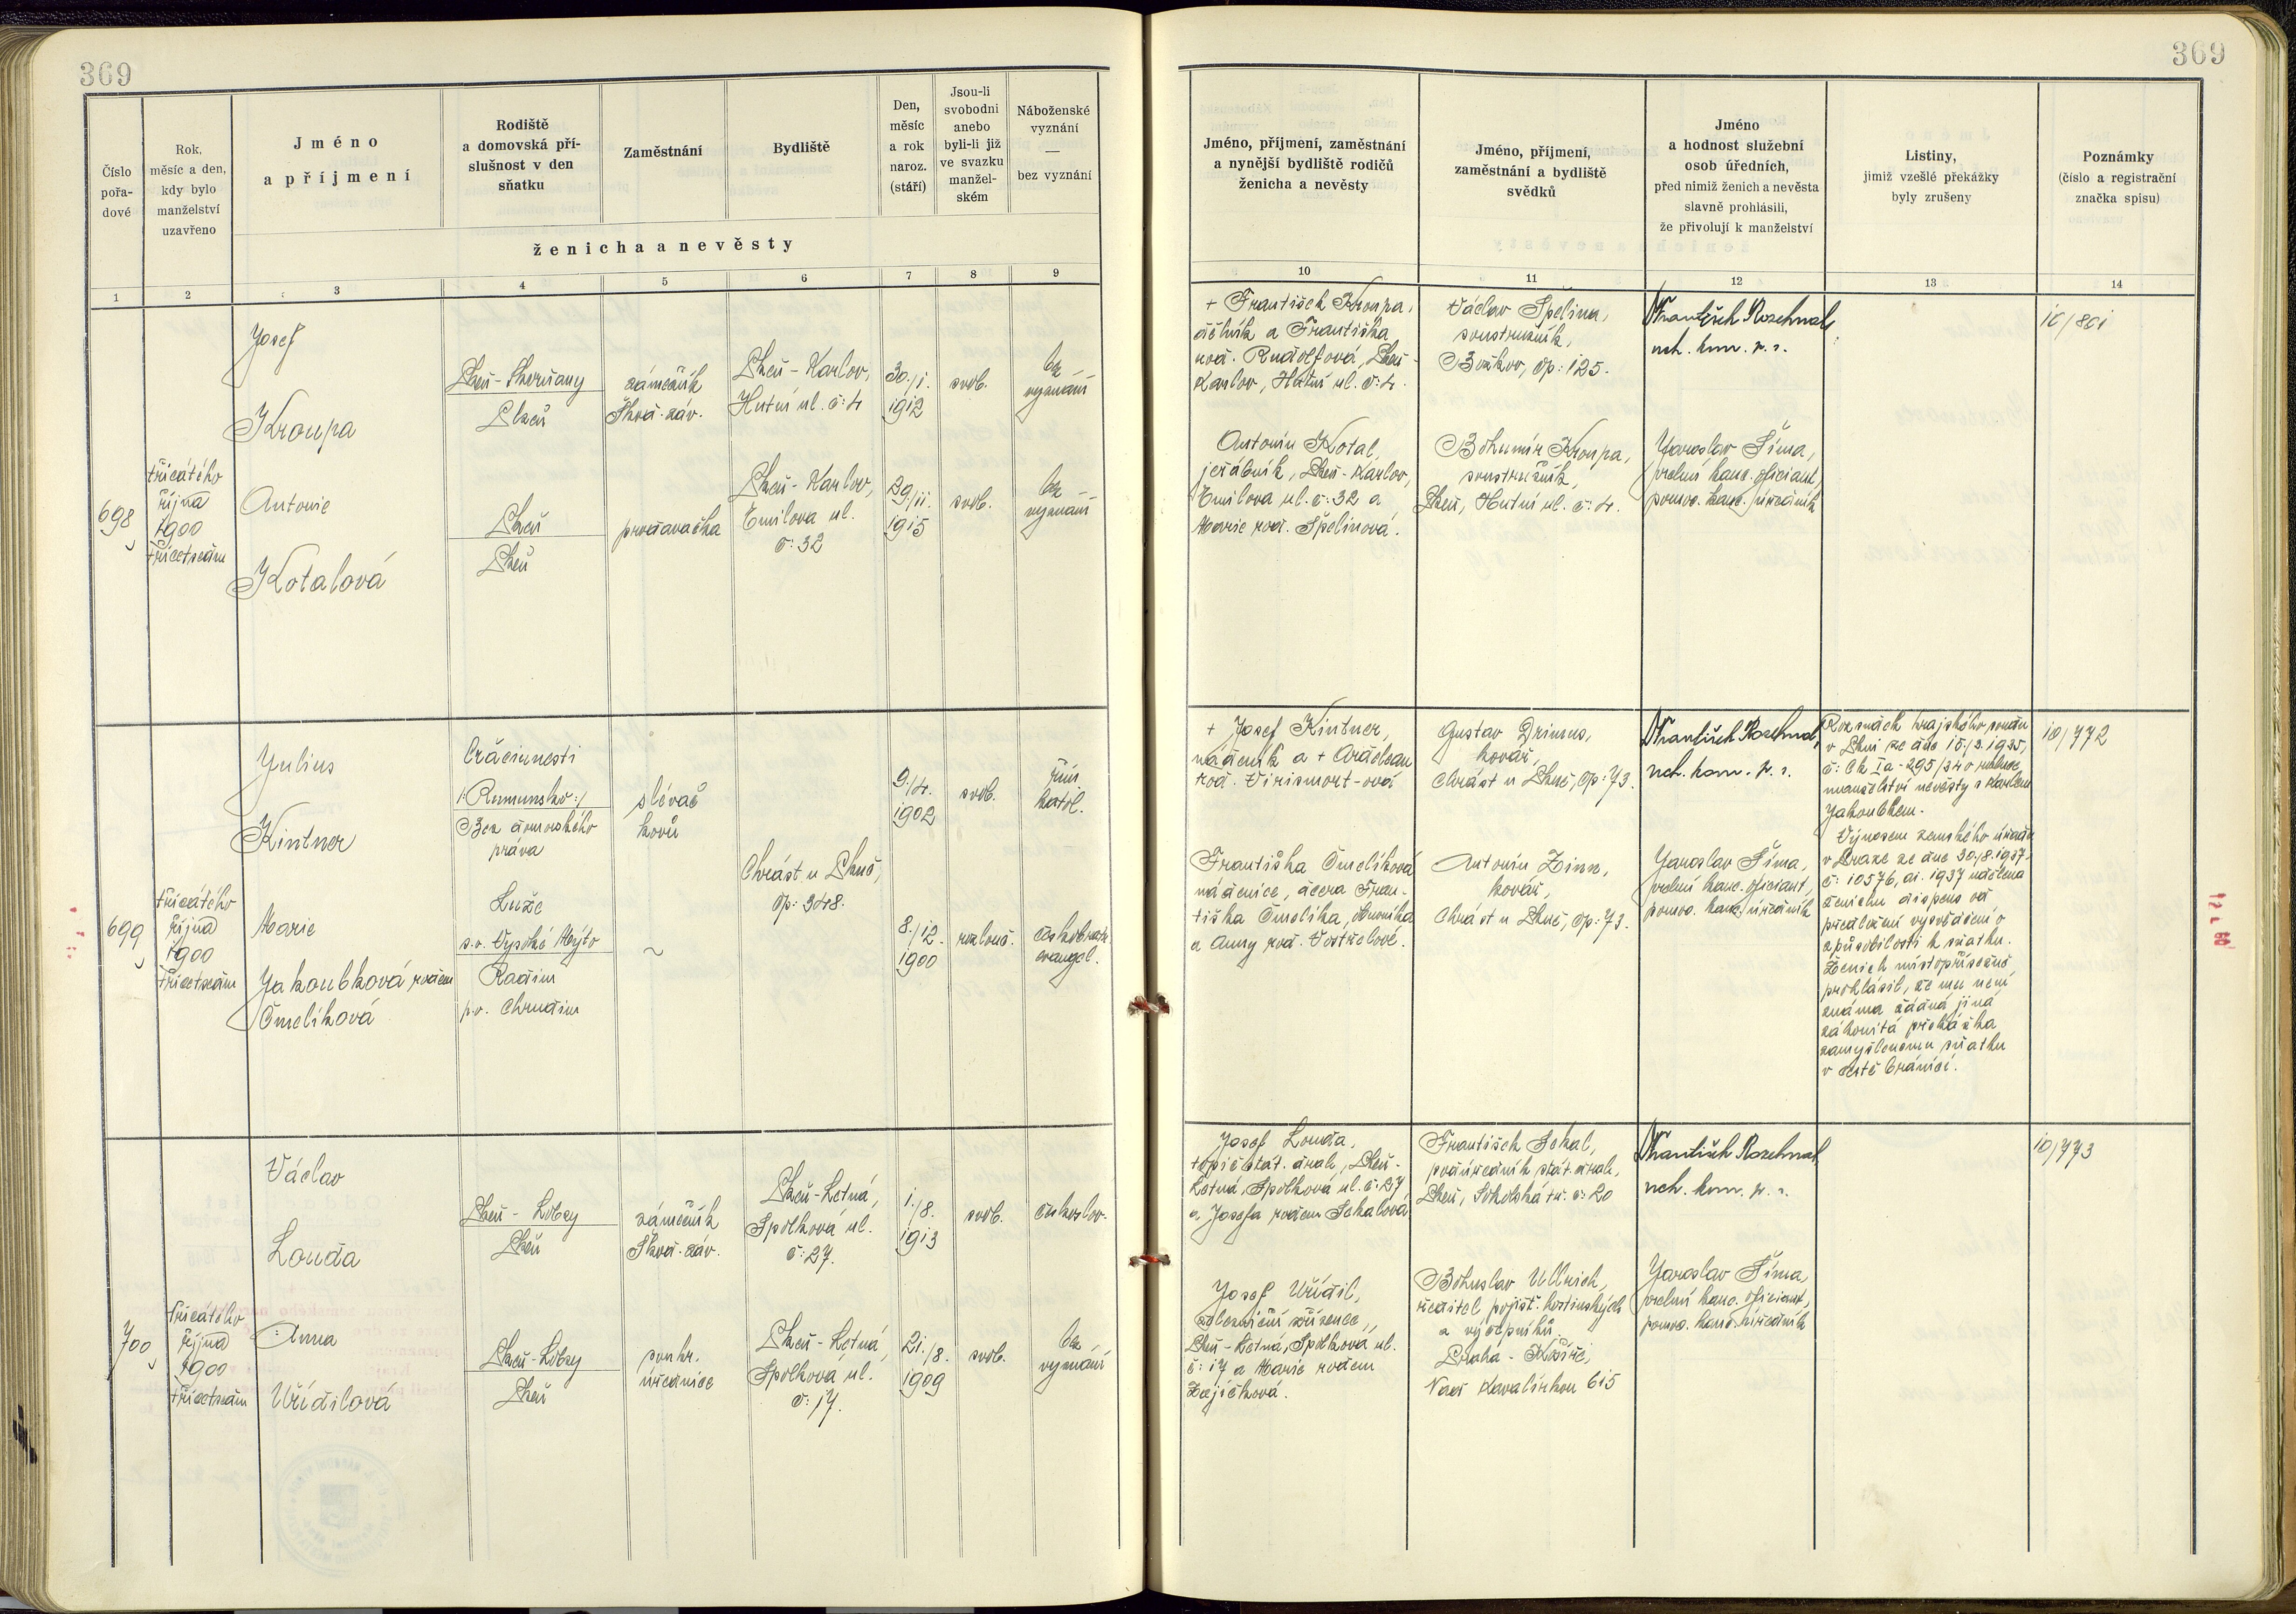 369
369
Číslo
pořa-
dové
Rok,
měsíc a den,
kdy bylo
manželství
uzavřeno
Jméno
a příjmení
Rodiště
a domovská pří-
slušnost v den
sňatku
Zaměstnání
Bydliště
Den,
měsíc
a rok
naroz.
(stáří)
Jsou-li
svobodni
anebo
byli-li již
ve svazku
manžel-
ském
Náboženské
vyznání
—
bez vyznání
ženicha a nevěsty
1 2 3 4 5 6 7 8 9
Jméno, příjmení, zaměstnání
a nynější bydliště rodičů
ženicha a nevěsty
Jméno, příjmení,
zaměstnání a bydliště
svědků
Jméno
a hodnost služební
osob úředních,
před nimiž ženich a nevěsta
slavně prohlásili,
že přivolují k manželství
Listiny,
jimiž vzešlé překážky
byly zrušeny
Poznámky
(číslo a registrační
značka spisu)
10 11 12 13 14
698
třicátého
října
1900
třicetsedm
Josef
Kroupa
Plzeň-Skvrňany
Plzeň
zámečník
Škod. záv.
Plzeň-Karlov,
Hutní ul. č: 4
30./1.
1912
svob.
bez
vyznání
Antonie
Kotalová
Plzeň
Plzeň
prodavačka
Plzeň-Karlov,
Emilova ul.
č: 32
29./11.
1915
svob.
bez
vyznání
+ František Kroupa,
dělník a Františka
rod. Rudolfová, Plzeň-
Karlov, Hutní ul. č: 4.
Antonín Kotal,
jeřábník, Plzeň-Karlov,
Emilova ul. č: 32 a
Marie rod. Špelinová.
Václav Špelina,
soustružník,
Božkov, čp: 125.
Bohumír Kroupa,
soustružník,
Plzeň, Hutní ul. č: 4.
František Rozehnal,
uch. kom. p. r.
Jaroslav Šíma,
volní kanc. oficiant,
pomoc. kanc. úředník
10/801
699
třicátého
října
1900
třicetsedm
Julius
Kintner
Crăciunesti
/:Rumunsko:/
Bez domovského
práva
slévač
kovů
9./4.
1902
svob.
řím.
katol.
Chrást u Plzně,
čp: 348.
Marie
Jakoubková rodem
Čmelíková
Luže
s.o. Vysoké Mýto
Radim
p.o. Chrudim
~
8./12.
1900
rozlouč.
českobratr.
evangel.
+ Josef Kintner,
nádeník a +
rod.
Františka Čmelíková
nádenice, dcera Fran-
tiška Čmelíka,
a Anny rod. Vostřelové.
Gustav Drinus,
kovář,
Chrást u Plzně, čp: 73.
Antonín Zinn,
kovář,
Chrást u Plzně, čp: 73.
František Rozehnal,
uch. kom. p. r.
Jaroslav Šíma,
volní kanc. oficiant,
pomoc. kanc. úředník
Rozsudek krajského soudu
v Plzni ze dne 15./3. 1935,
č: Ck Ia-295/34 o rozluce
manželství nevěsty s Karlem
Jakoubkem.
Výnosem zemského úřadu
v Praze ze dne 30./8. 1937,
č: 10576, ai. 1937 udělena
ženichu dispens od
předložení vysvědčení o
způsobilosti k sňatku.
Ženich místopřísežně
prohlásil, že mu není
známa žádná jiná
zákonitá překážka
zamýšlenému sňatku
v cestě bránící.
10/772
700
třicátého
října
1900
třicetsedm
Václav
Louda
Plzeň-Lobzy
Plzeň
zámečník
Škod. záv.
Plzeň-Letná,
Spolková ul.
č: 27.
1./8.
1913
svob.
českoslov.
Anna
Uřídilová
Plzeň-Lobzy
Plzeň
soukr.
úřednice
Plzeň-Letná,
Spolková ul.
č: 17.
21./8.
1909
svob.
bez
vyznání
Josef Louda,
topič stát. drah, Plzeň-
Letná, Spolková ul. č: 27,
a Josefa rodem Sekalová
Josef Uřídil,
železniční zřízenec,
Plzeň-Letná, Spolková ul.
č: 17 a Marie rodem
Zajíčková.
František Sekal,
podúředník stát. drah,
Plzeň, Sokolská tř. č: 20
Bohuslav Ullrich,
ředitel pojišť. hostinských
a výčepníků,
Praha-Košíře,
Nad Kavalírkou 615
František Rozehnal
uch. kom. p. r.
Jaroslav Šíma,
volní kanc. oficiant,
pomoc. kanc. úředník
10/773